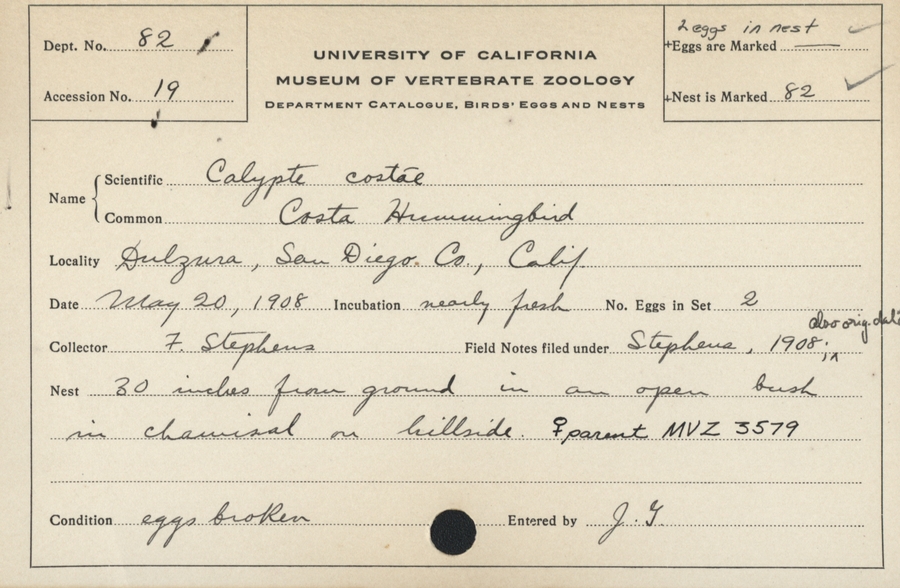 Dept. No. 82
Accession No. 19
UNIVERSITY OF CALIFORNIA
MUSEUM OF VERTEBRATE ZOOLOGY
DEPARTMENT CATALOGUE, BIRDS' EGGS AND NESTS
2 eggs in nest
+Eggs are Marked —
+Nest is Marked 82
Name
Scientific Calypte costae
Common Costa Hummingbird
Locality Dulzura, San Diego. Co., Calif.
Date May 20, 1908 Incubation nearly fresh No. Eggs in Set 2
also orig. data
Collector F. Stephens Field Notes filed under Stephens, 1908;
Nest 30 inches from ground in an open bush
in chamisal on hillside. ♀ parent MVZ 3579
Condition eggs broken Entered by J. G.